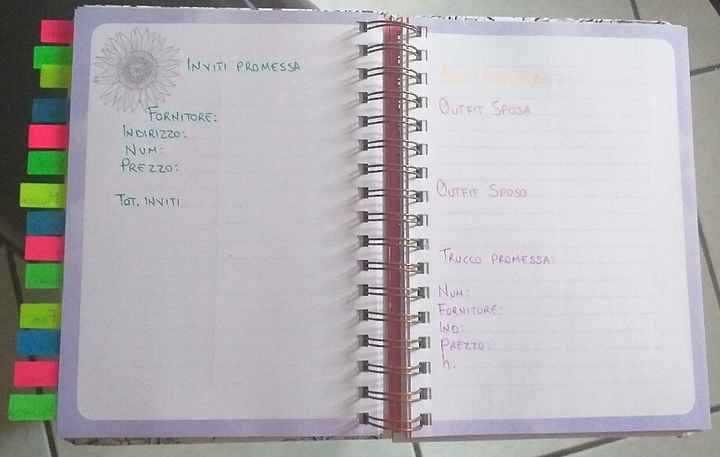 INVITI PROMESSA
FORNITORE:
INDIRIZZO:
NUM:
PREZZO:
TOT. INVITI
OUTFIT SPOSA
OUTFIT SPOSO
TRUCCO PROMESSA:
NUM:
FORNITORE:
IND:
PREZZO:
h: